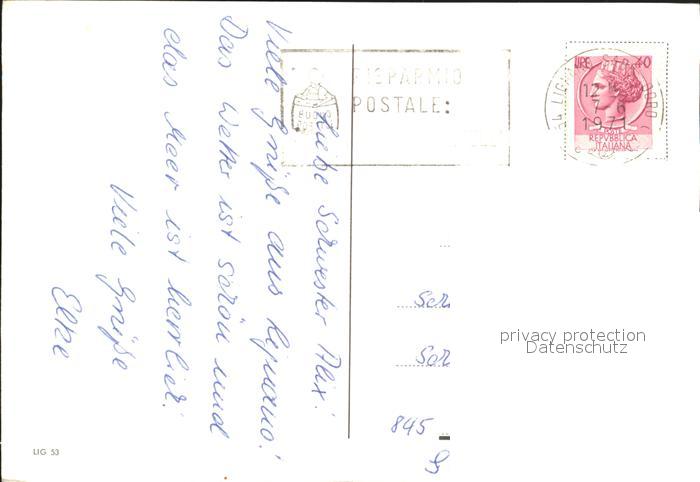 Liebe Schwester Alix!
Viele Grüße aus Lignano!
Das Wetter ist schön und
das Meer ist herrlich!
Viele Grüße
Elke
RISPARMIO
POSTALE:
BUONO
LIRE 40
12-
7 6
1971
POSTE
REPVBBLICA
ITALIANA
Sch
Sch
845
privacy protection
Datenschutz
LIG 53